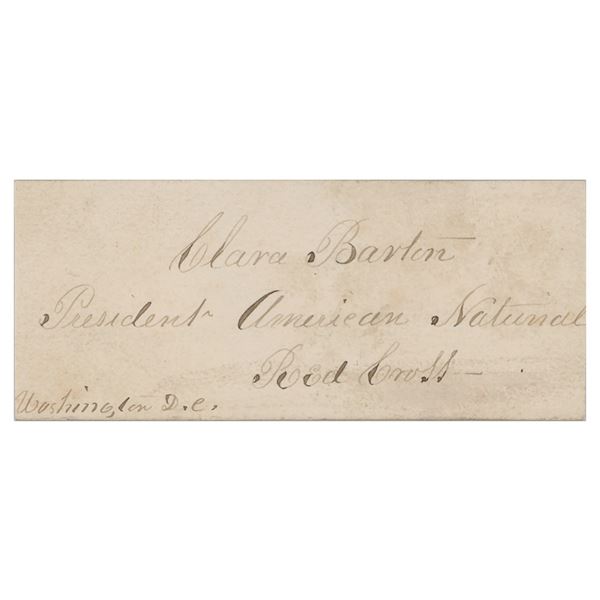 Clara Barton
President American National
Red Cross –
Washington D.C.